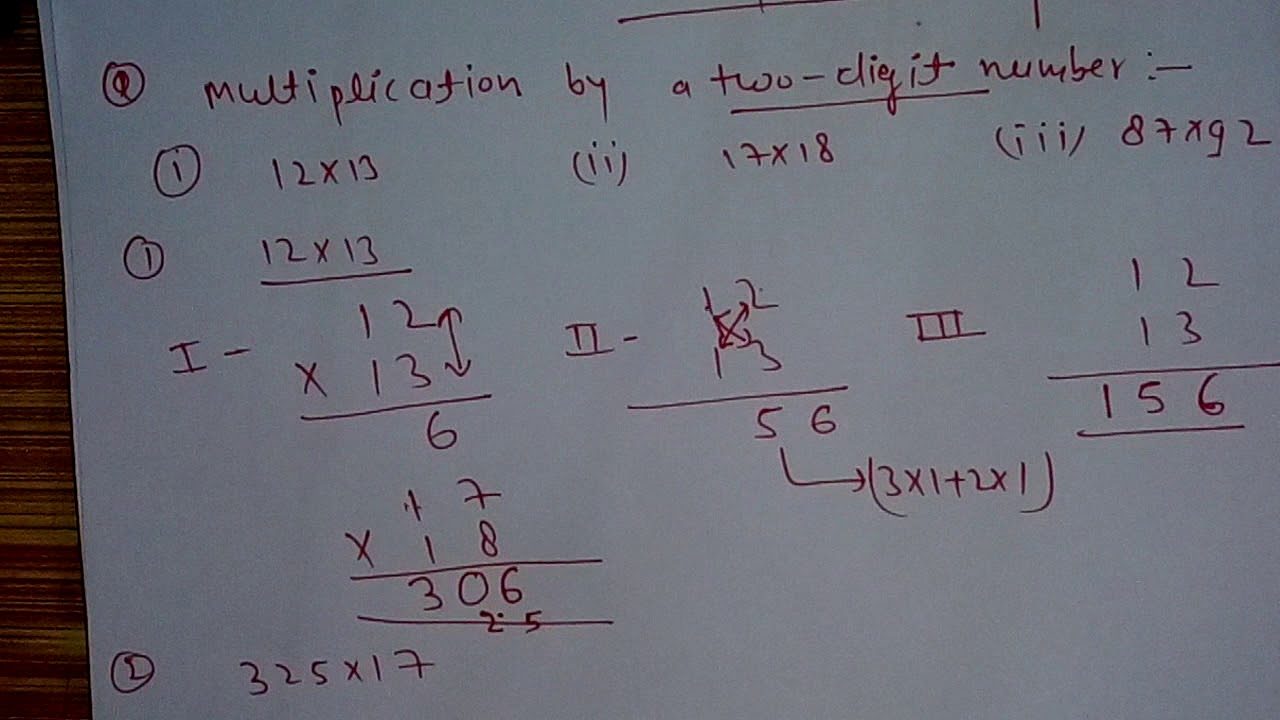 ② Multiplication by a two-digit number :-
① 12×13 (ii) 17×18 (iii) 87×92
① 12×13
I - 12 × 13 6
II - 12 13 56
→(3×1+2×1)
III 12 13 156
17 × 18 306
2 5
② 325×17